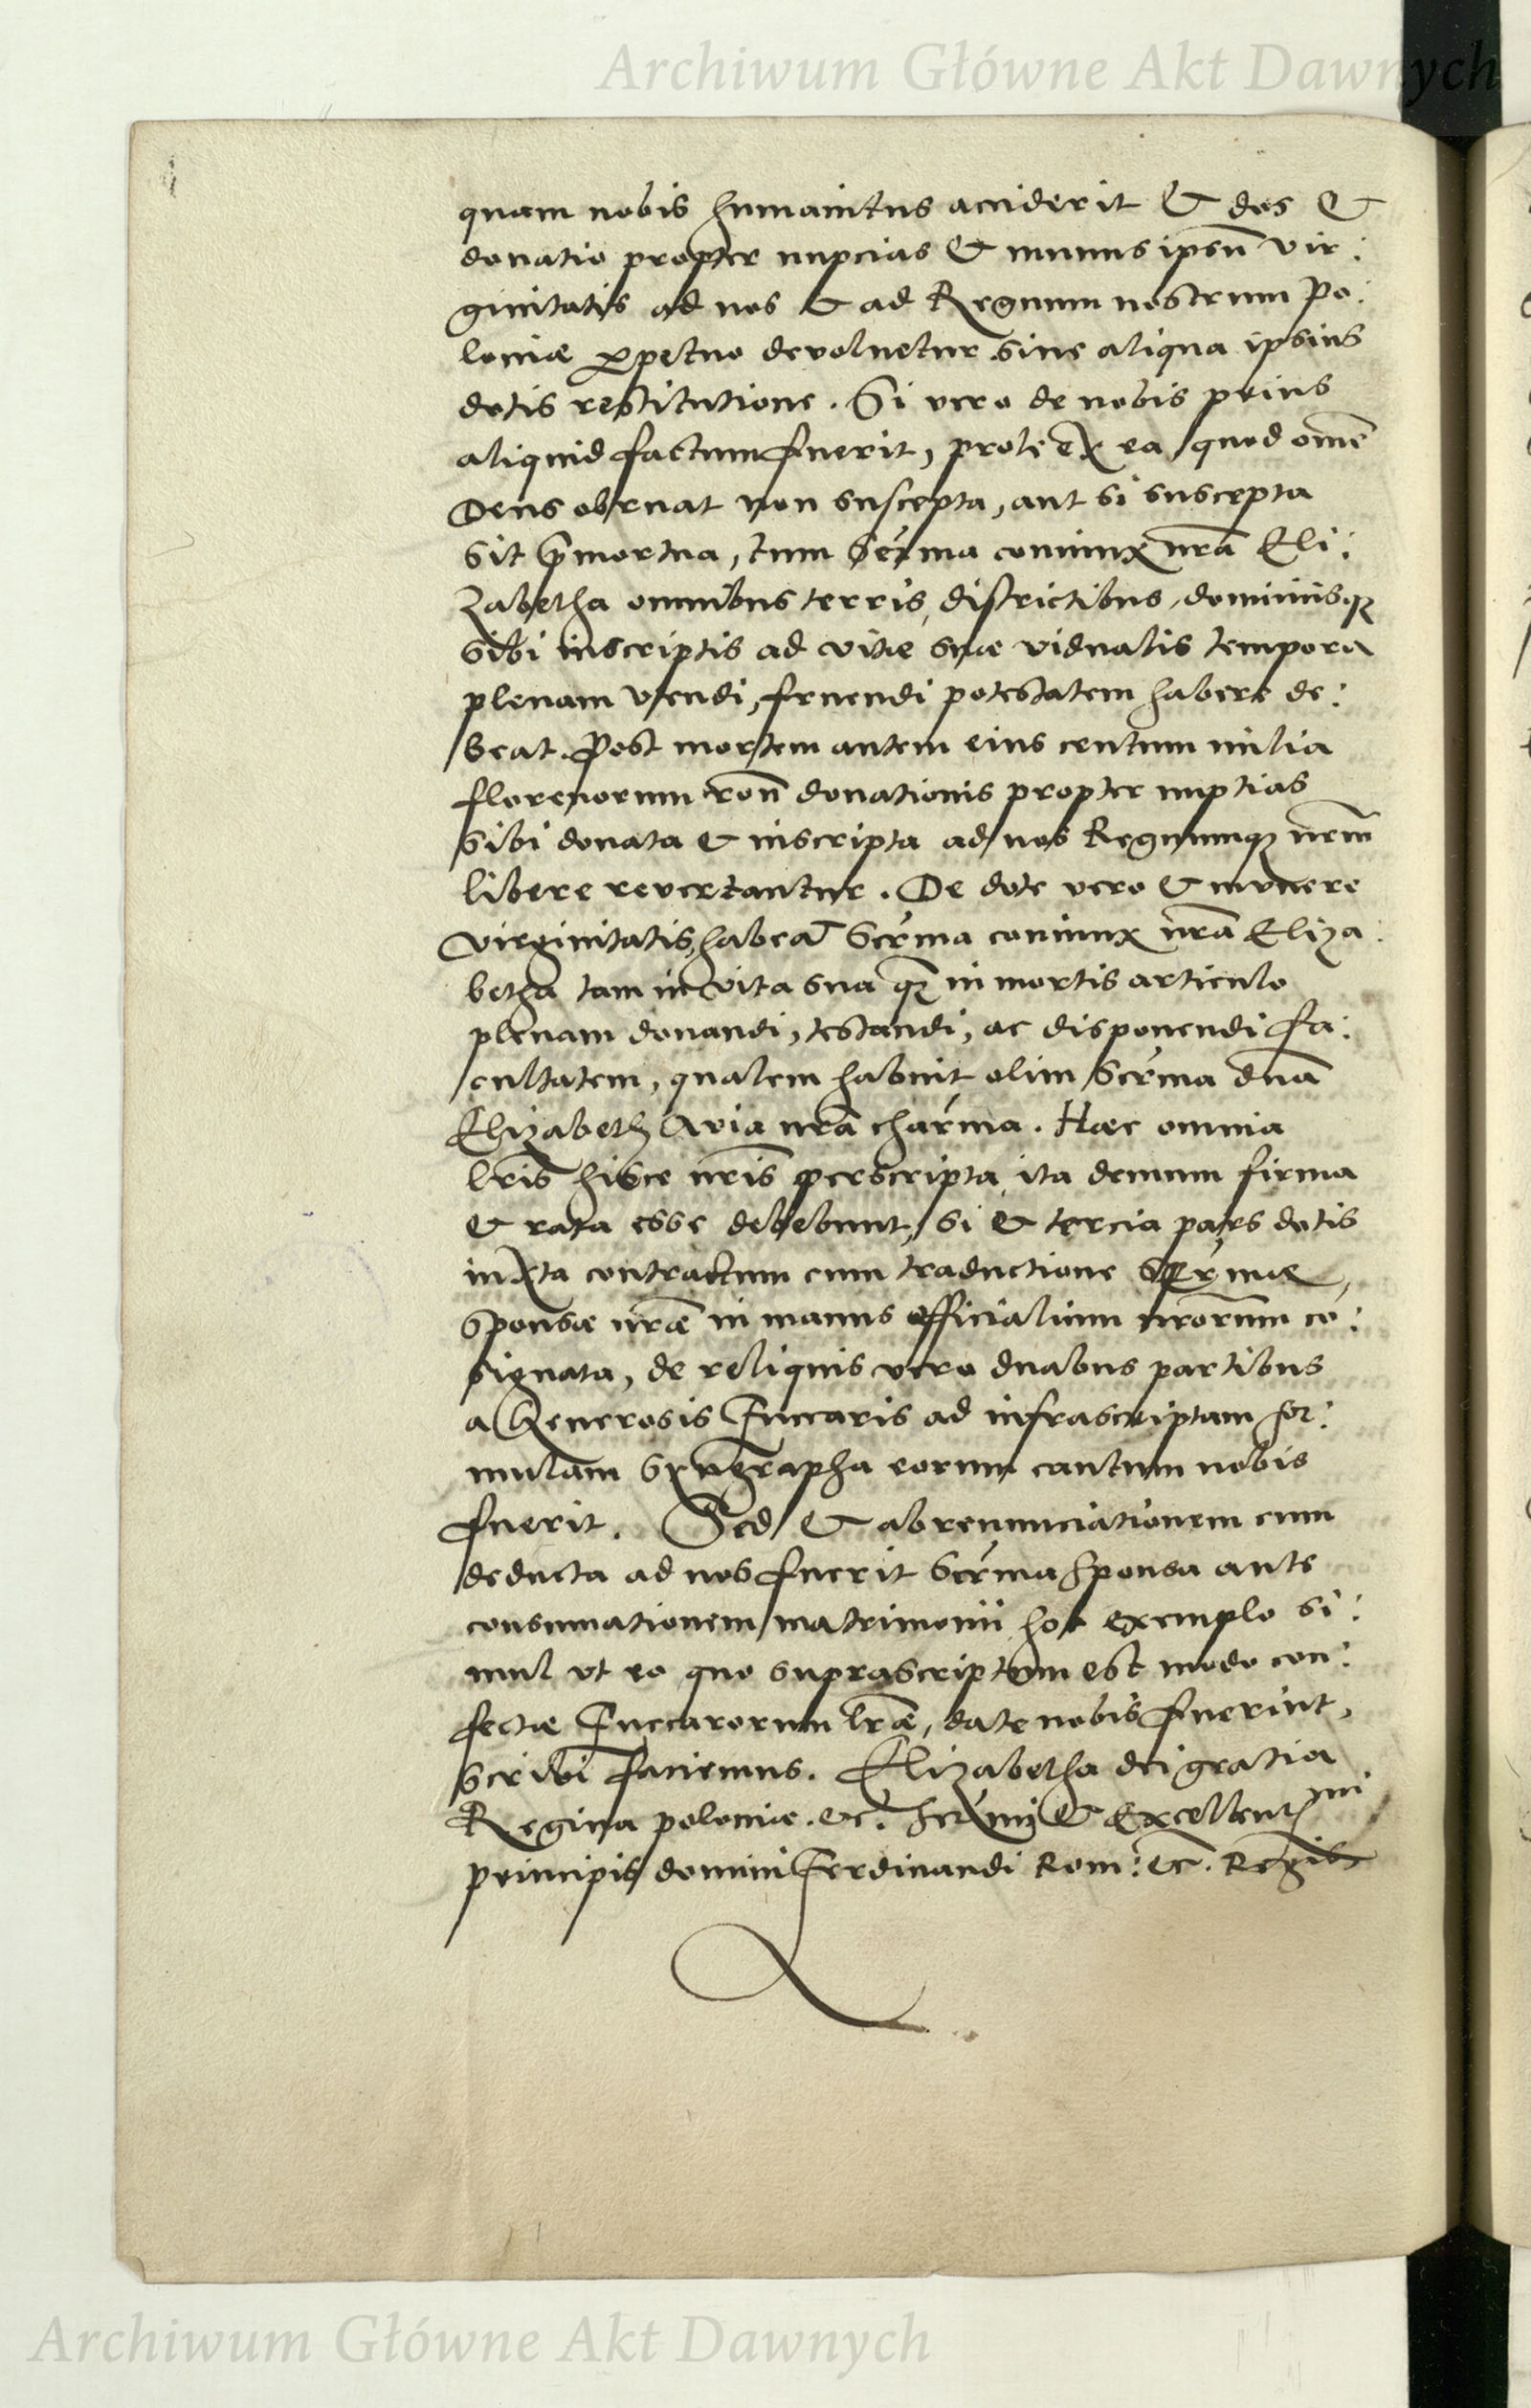 Archiwum Główne Akt Dawnych
quam nobis humanitus acciderit & dos &
donatio propter nupcias & munus ipsū vir:
ginitatis ad nos & ad Regnum nostrum Po:
loniæ ꝑpetuo devoluetur sine aliqua ipsius
dotis restitutione. Si vero de nobis prius
aliquid factum fuerit, prole ex ea, quod omē
Deus obruat non suscepta, aut si suscepta
sit p̄mortua, tum Serma coniunx nrā Eli:
zabetha omnibus terris, districtibus, dominiisqꝫ
sibi inscriptis ad vitæ suæ vidualis tempora
plenam vtendi, fruendi potestatem habere de:
beat. Post mortem autem eius centum milia
florenorum ron̄ donationis propter nuptias
sibi donata & inscripta ad nos Regnumqꝫ nrm̄
libere revertantur. De dote vero & munere
virginitatis, habeat Serma coniunx nrā Eliza:
betha tam in vita sua qꝫ in mortis articulo
plenam donandi, testandi, ac disponendi fa:
cultatem, qualem habuit olim Serma dnā
Elizabeth Avia nrā charma. Hæc omnia
lrīs hisce nrīs perscripta, ita demum firma
& rata esse debebunt, si & tercia pars dotis
iuxta contractum cum traductione Sermæ,
Sponsæ nrǣ in manus officialium nrōrum cō:
signata, de reliquis vero duabus partibus
a Generosis Fuccaris ad infrascriptam for:
mulam syngrapha eorum cautum nobis
fuerit. Sed & abrenunciationem cum
deducta ad nos fuerit Serma Sponsa ante
consumationem matrimonii hoc exemplo si:
mul vt eo quo suprascriptum est modo con:
fectæ Fuccarorum lrǣ, date nobis fuerint,
scribi faciemus. Elizabetha dei gratia
Regina poloniæ. &c. Sermi & Excellentmi
principis domini Ferdinandi Rom: &c. Regis
Archiwum Główne Akt Dawnych